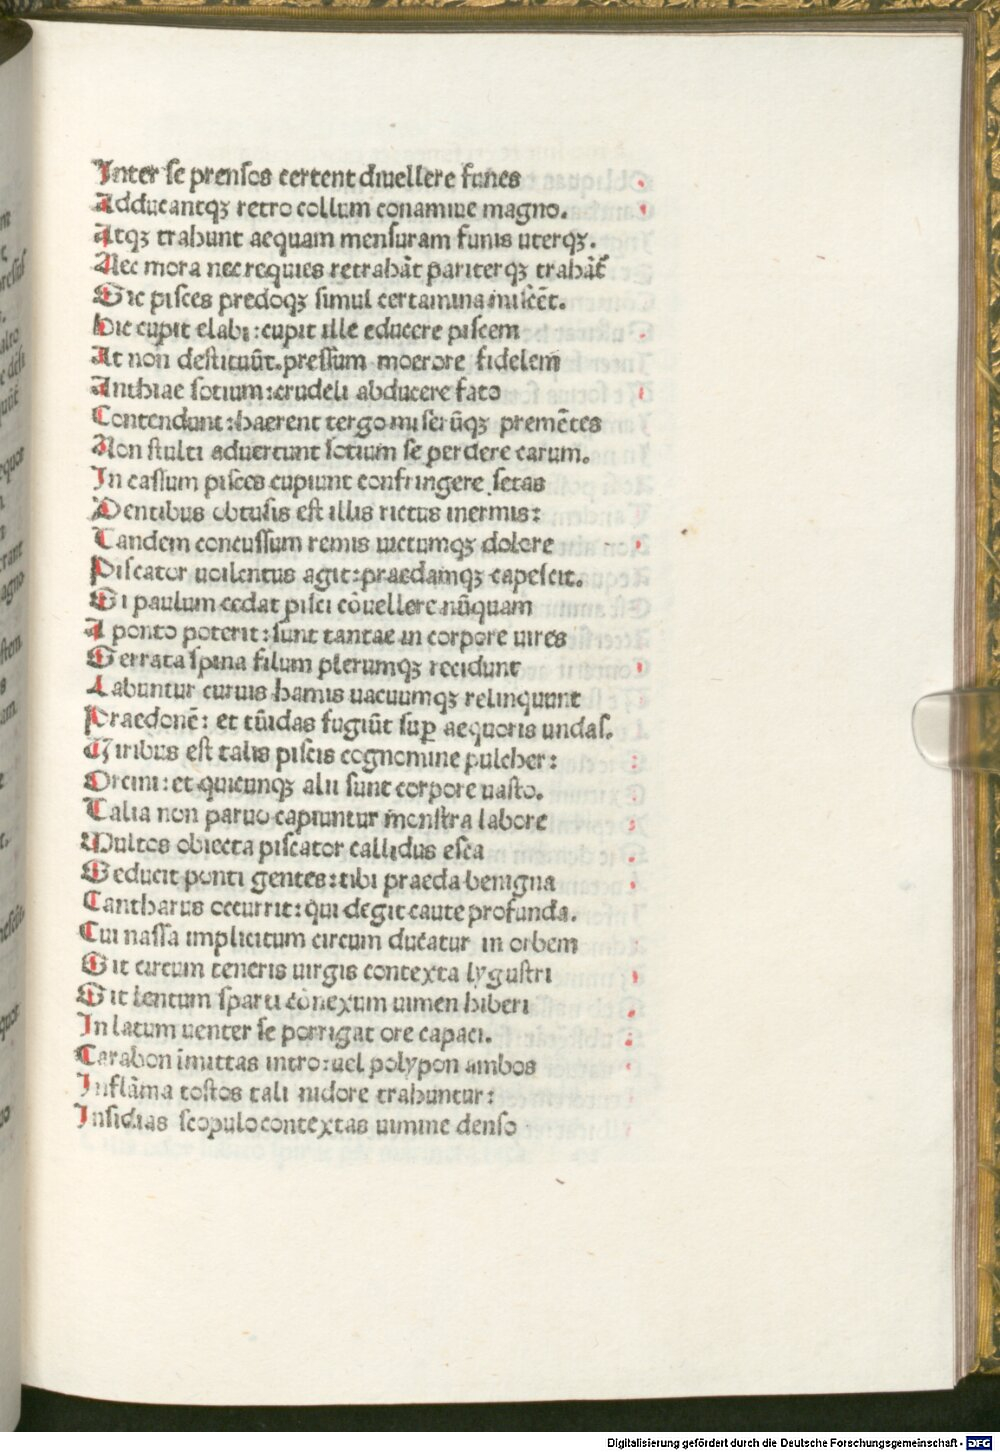 Inter se prensos certent diuellere funes
Adducantqꝫ retro collum conamine magno.
Atqꝫ trahunt aequam mensuram funis uterqꝫ.
Nec mora nec requies retrahāt pariterqꝫ trahāt
Sic pisces predoqꝫ simul certamina miscēt.
Hic cupit elabi: cupit ille educere piscem
At non destituūt. pressum moerore fidelem
Anthiae sotium: crudeli abducere fato
Contendunt: haerent tergo miserūqꝫ premētes
Non stulti aduertunt sotium se perdere carum.
In cassum pisces cupiunt confringere setas
Dentibus obtusis est illis rictus inermis:
Tandem concussum remis uictumqꝫ dolore
Piscator uoilentus agit: praedamqꝫ capescit.
Si paulum cedat pisci cōuellere nūquam
A ponto poterit: sunt tantae in corpore uires
Serrata spina filum plerumqꝫ recidunt
Labuntur curuis hamis uacuumqꝫ relinquunt
Praedonē: et tūidas fugiūt suꝑ aequoris undas.
Uiribus est talis piscis cognomine pulcher:
Orcini: et quicunqꝫ alii sunt corpore uasto.
Talia non paruo capiuntur monstra labore
Multos obiecta piscator callidus esca
Seducit ponti gentes: tibi praeda benigna
Cantharus occurrit: qui degit caute profunda.
Cui nassa implicitum circum ducatur in orbem
Sit circum teneris uirgis contexta lygustri
Sit lentum sparti cōnexum uimen hiberi
In latum uenter se porrigat ore capaci.
Carabon īmittas intro: uel polypon ambos
Inflāma tostos tali nidore trahuntur:
Insidias scopulo contextas uimine denso
Digitalisierung gefördert durch die Deutsche Forschungsgemeinschaft - DFG